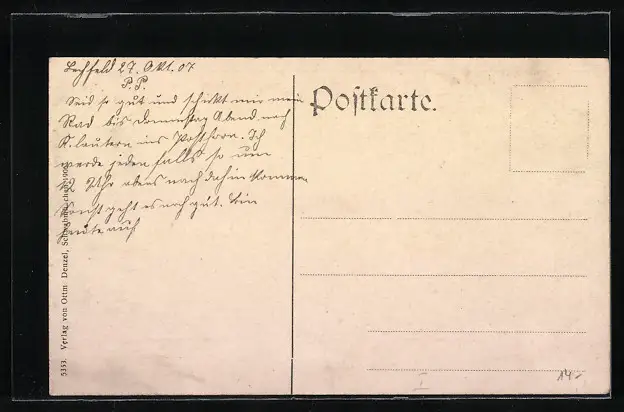 Lechfeld 27. Okt. 07
P. P.
Seid so gut und schickt mir mein
Rad bis Donnerstag Abend nach
K.lautern ins Posthorn. Ich
werde jeden falls so um
12 Uhr abens nach dahin kommen
sonst geht es noch gut. Bin
Ende auf
Postkarte.
5353. Verlag von Ottm. Denzel, Schwabmünchen. 1906.
I
14.-